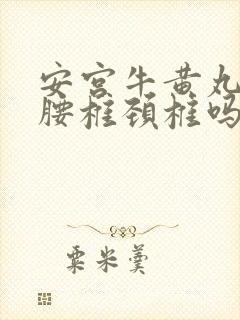 安宫牛黄丸
腰椎颈椎吗
粟米羹